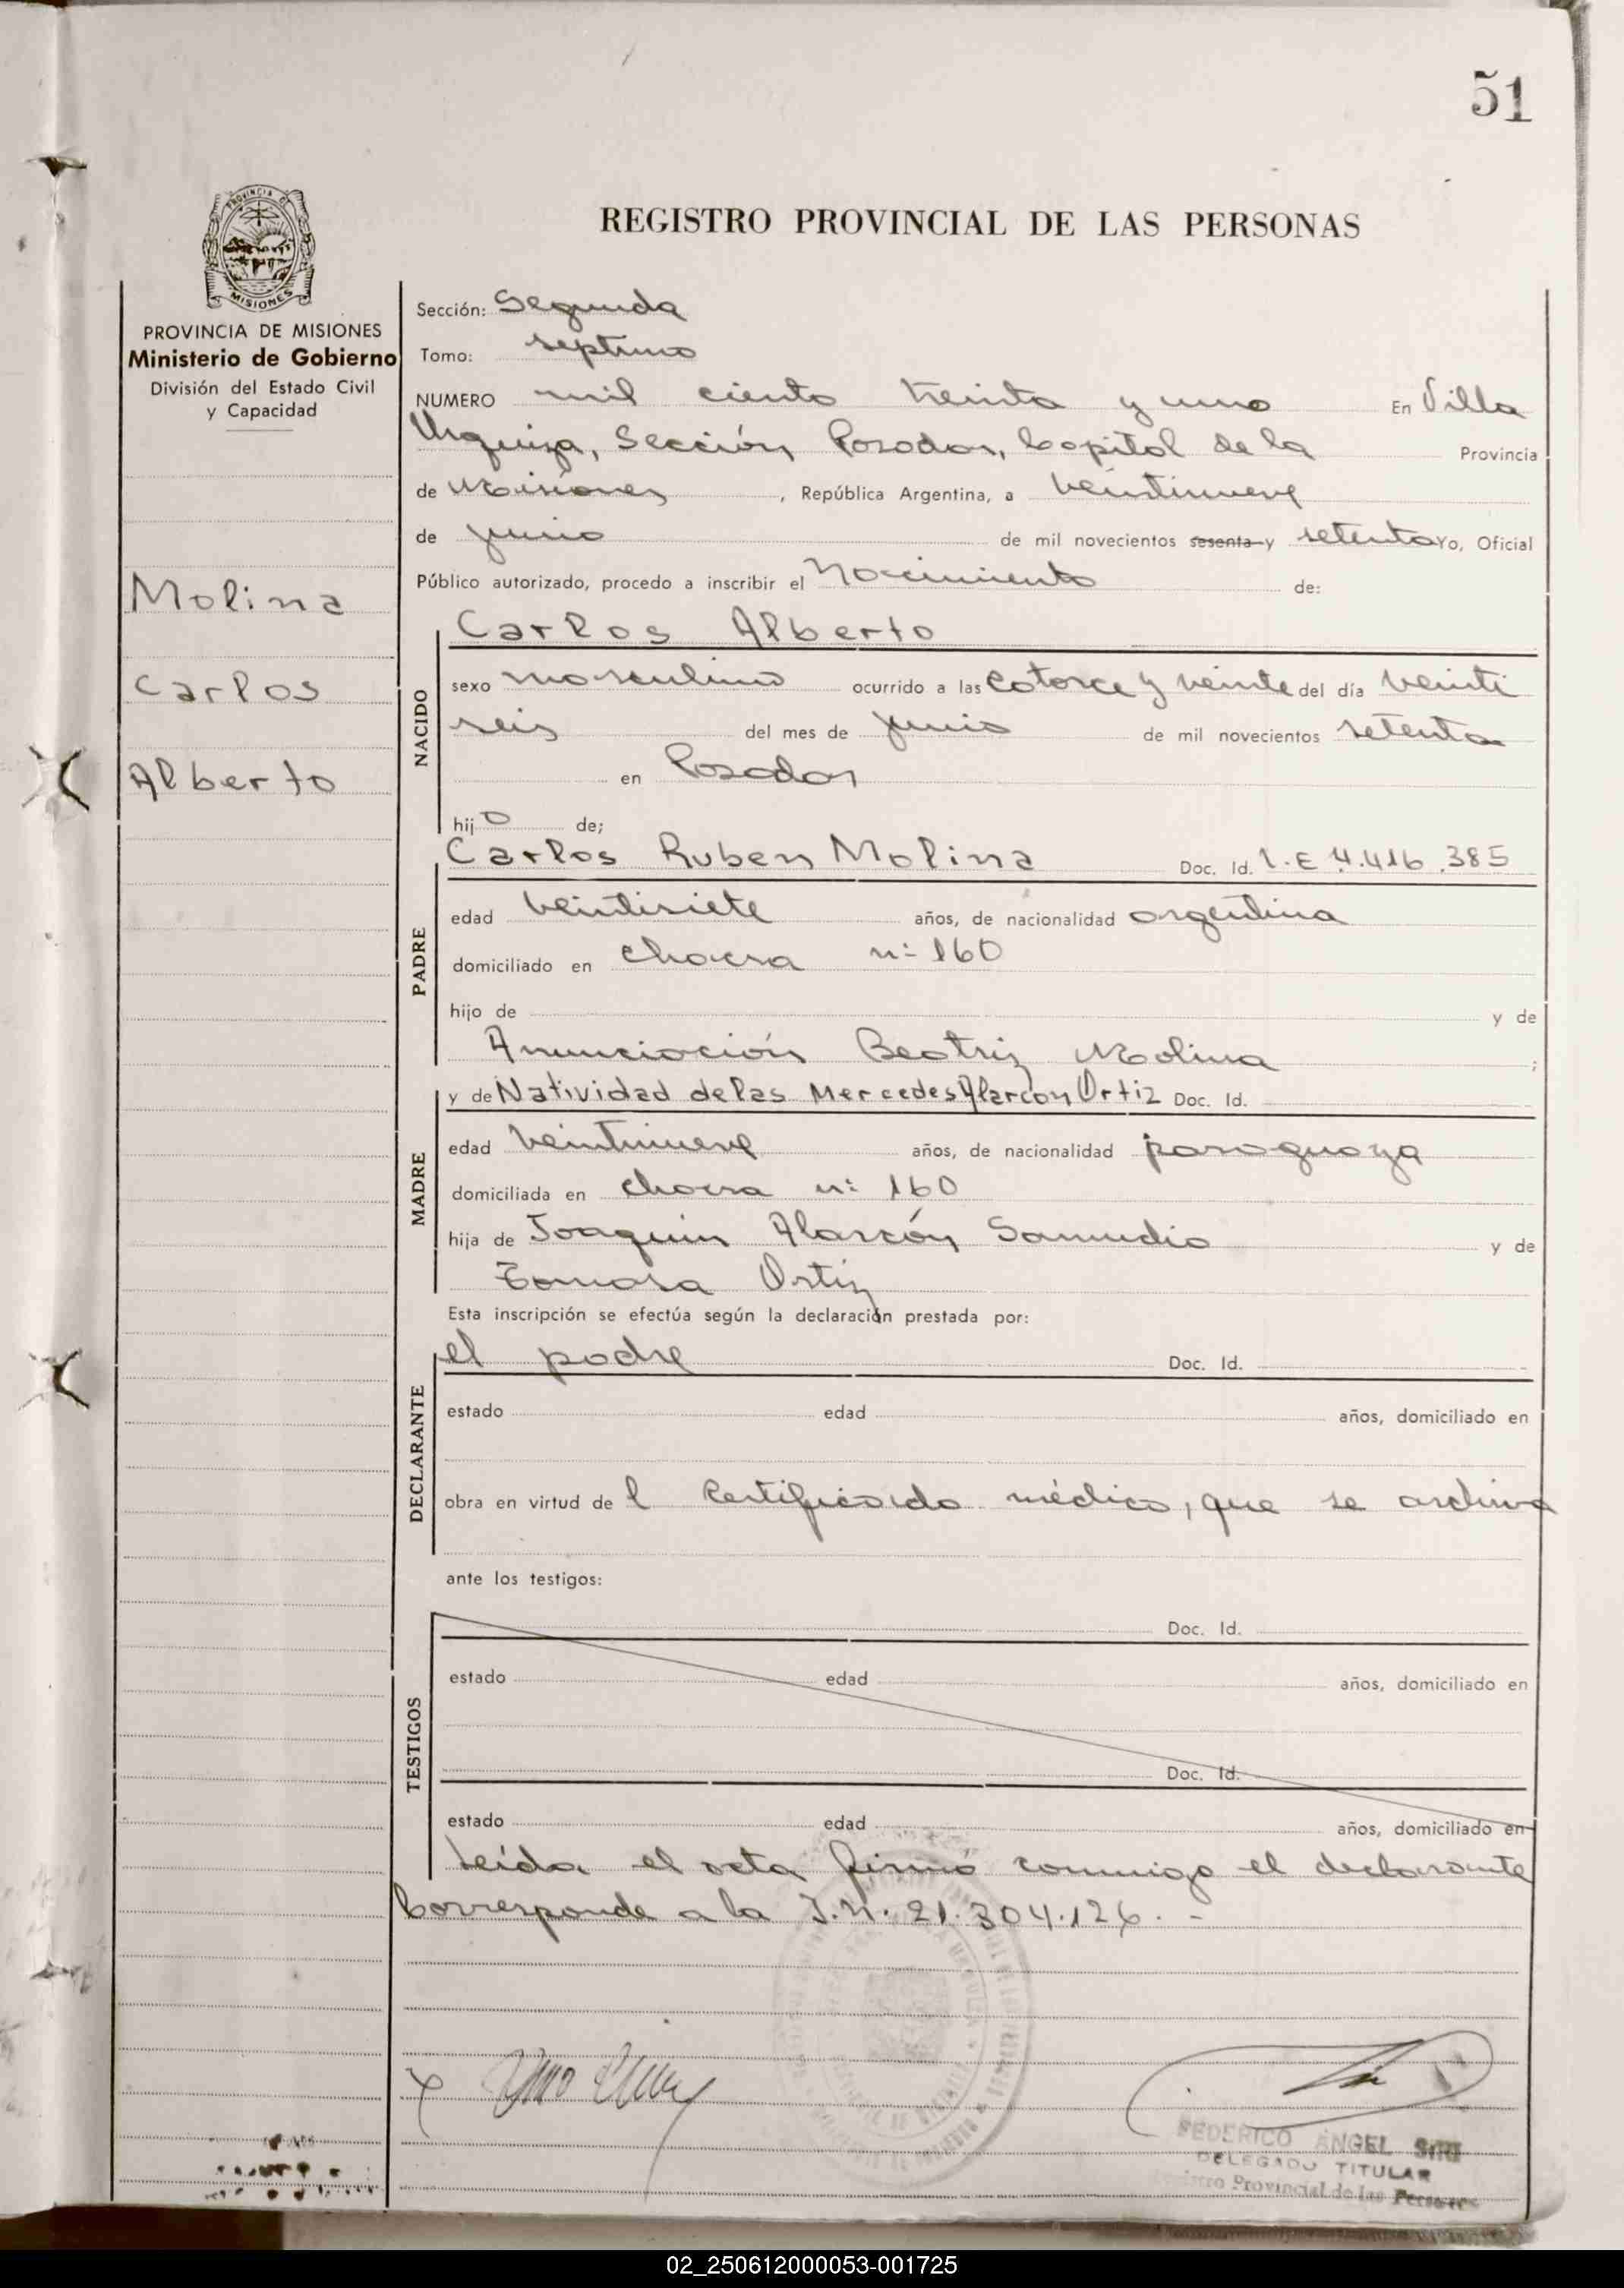 51
REGISTRO PROVINCIAL DE LAS PERSONAS
PROVINCIA DE MISIONES
Ministerio de Gobierno
División del Estado Civil
y Capacidad
Molina
Carlos
Alberto
Sección: Segunda
Tomo: septimo
NUMERO mil ciento treinta y uno En Villa
Urquiza, Sección Posadas, Capital de la Provincia
de Misiones, República Argentina, a veintinueve
de junio de mil novecientos sesenta y setenta Yo, Oficial
Público autorizado, procedo a inscribir el Nacimiento de:
NACIDO
Carlos Alberto
sexo masculino ocurrido a las catorce y veinte del día veinti
seis del mes de junio de mil novecientos setenta
en Posadas
hijo de;
PADRE
Carlos Ruben Molina Doc. Id. L.E 4.416.385
edad veintisiete años, de nacionalidad argentina
domiciliado en chacra nº 160
hijo de y de
Anunciación Beatriz Molina ;
MADRE
y de Natividad de las Mercedes Alarcón Ortiz Doc. Id.
edad veintinueve años, de nacionalidad paraguaya
domiciliada en chacra nº 160
hija de Joaquin Alarcón Samudio y de
Tomasa Ortiz
Esta inscripción se efectúa según la declaración prestada por:
DECLARANTE
el padre Doc. Id.
estado edad años, domiciliado en
obra en virtud de l certificado médico, que se archiva
ante los testigos:
TESTIGOS
Doc. Id.
estado edad años, domiciliado en
Doc. Id.
estado edad años, domiciliado en
Leída el acta firmó conmigo el declarante
Corresponde a la I.N. 21.304.126. -
FEDERICO ANGEL
DELEGADO TITULAR
Registro Provincial de las Personas
02_250612000053-001725